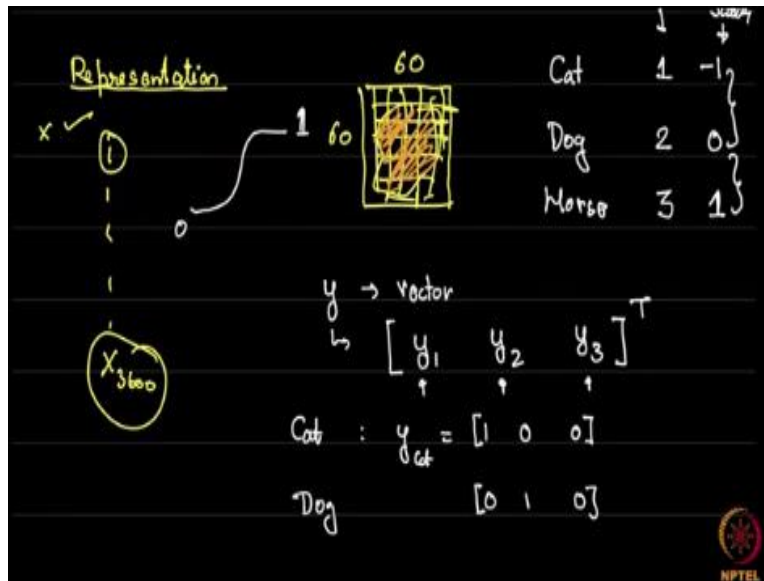 Representation
60
x ✓
1
60
1
0
Cat 1 -1
Dog 2 0
Horse 3 1
y → vector
↳ [y₁ y₂ y₃]ᵀ
X₃₆₀₀
Cat : y_cat = [1 0 0]
Dog [0 1 0]
NPTEL